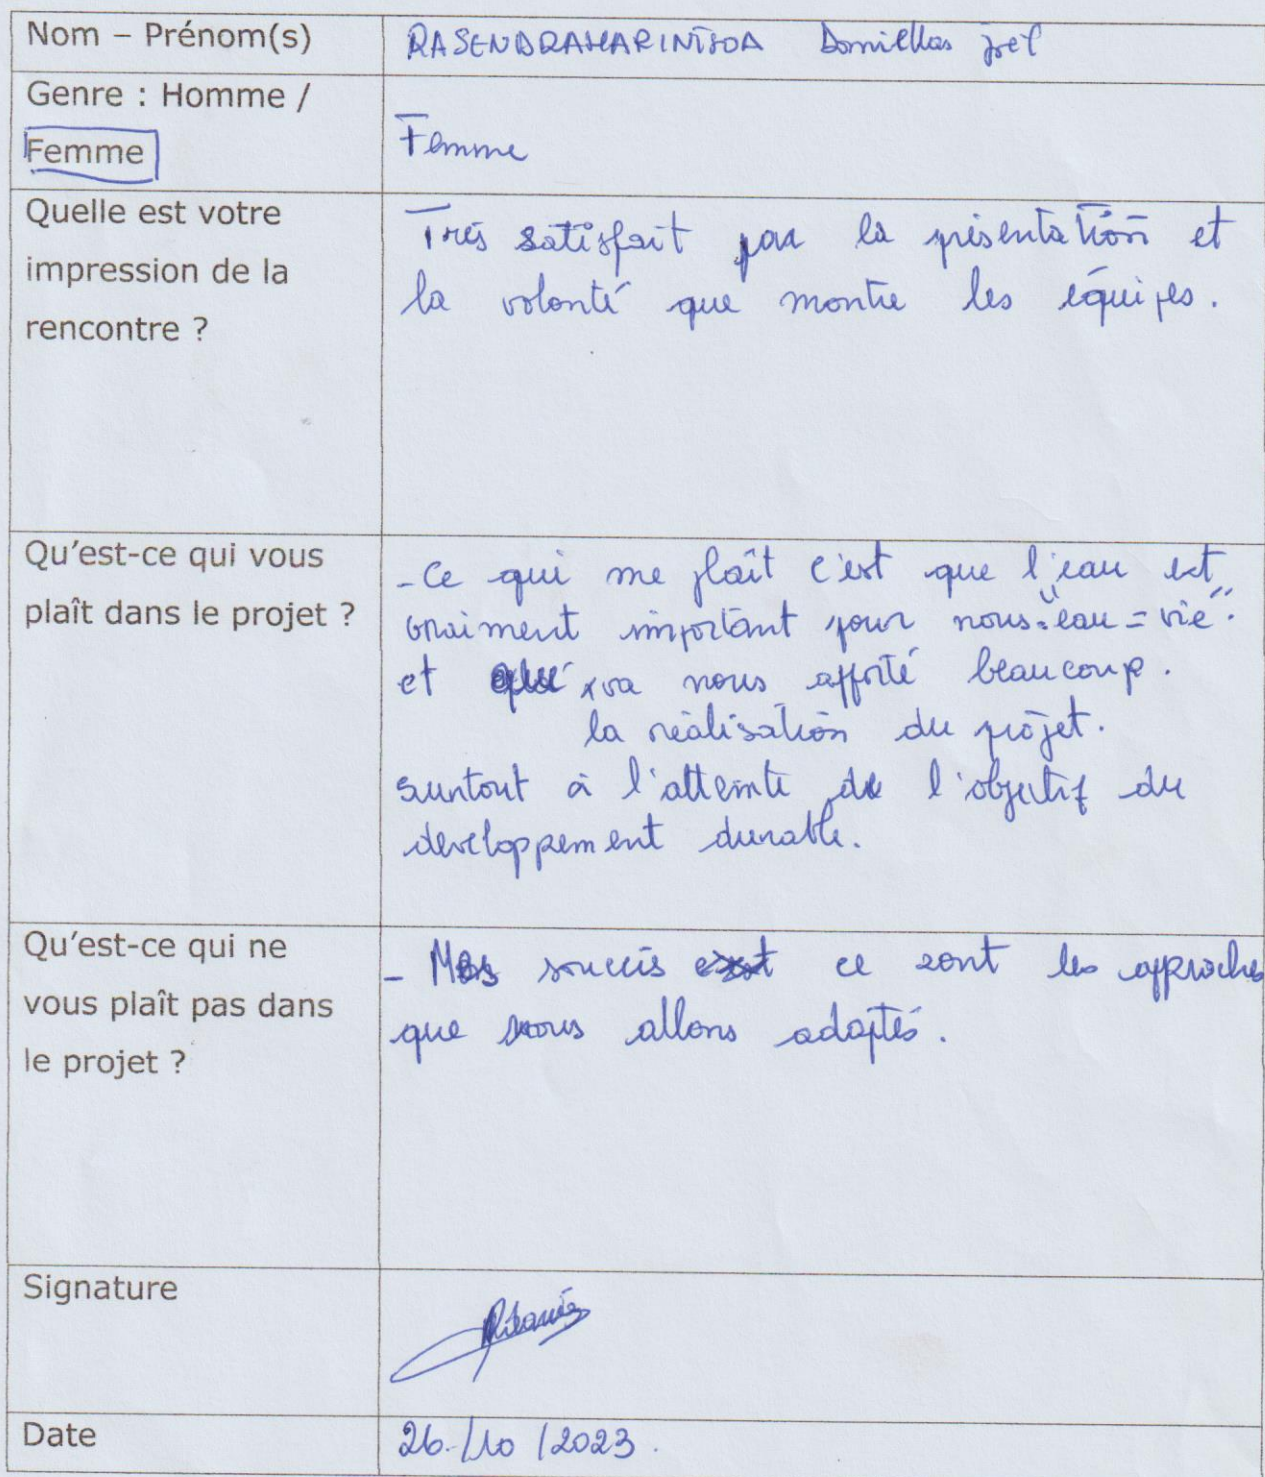 Nom – Prénom(s)
RASENDRAHARINTSOA
Genre : Homme /
Femme
Femme
Quelle est votre
impression de la
rencontre ?
Très satisfait par la présentation et
la volonté que montre les équipes.
Qu'est-ce qui vous
plaît dans le projet ?
- Ce qui me plaît c'est que l'eau est
vraiment important pour nous "eau = vie".
et va nous apporté beaucoup.
la réalisation du projet.
surtout à l'atteinte de l'objectif du
developpement durable.
Qu'est-ce qui ne
vous plaît pas dans
le projet ?
- Mes soucis ce sont les approches
que nous allons adaptés.
Signature
Date
26/10/2023.